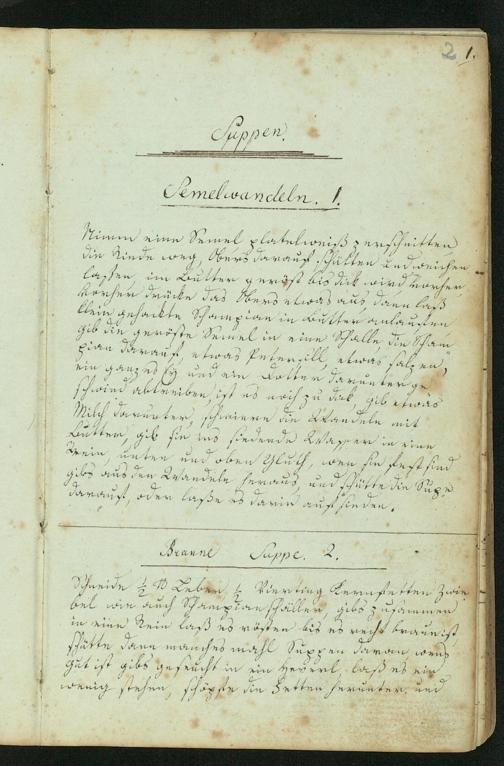 2 1.
Suppen.
Semelwandeln. 1.
Nimm eine Semel platelweiß zerschnitten
die Rinde weg, Obers darauf schütten und weichen
lassen, im Butter geröst bis dick wird vorher
vorher drücke das Obers etwas aus dann laß
klein gehackte Schampian in Butter anlaufen
gib die geröste Semel in eine Schalle die Scham
pian darauf, etwas Petersill etwas salzen,
ein ganzes Ey und ein Dotter darunter ge
schwind abtreiben, ist es noch zu dick, gib etwas
Milch darunter, schmiere die Wandeln mit
Butter, gib sie ins siedende Wasser in eine
Rein, unten und oben Gluth, wen sie fest sind
gibs aus den Wandeln heraus, und schütte die Supe
darauf, oder lasse es darin aufsieden.
Braune Suppe. 2.
Schneide ½ ℔ Leber, ½ Vierting Kernfetten Zwie
bel wie auch Schampianschäller, gibs zusammen
in eine Rein laß es rösten bis es recht braun ist
schütte dann manches mahl Suppen daran wens
gut ist gibs geseucht in ein Heferl, laß es ein
wenig stehen, schöpfe die Fetten herunter und